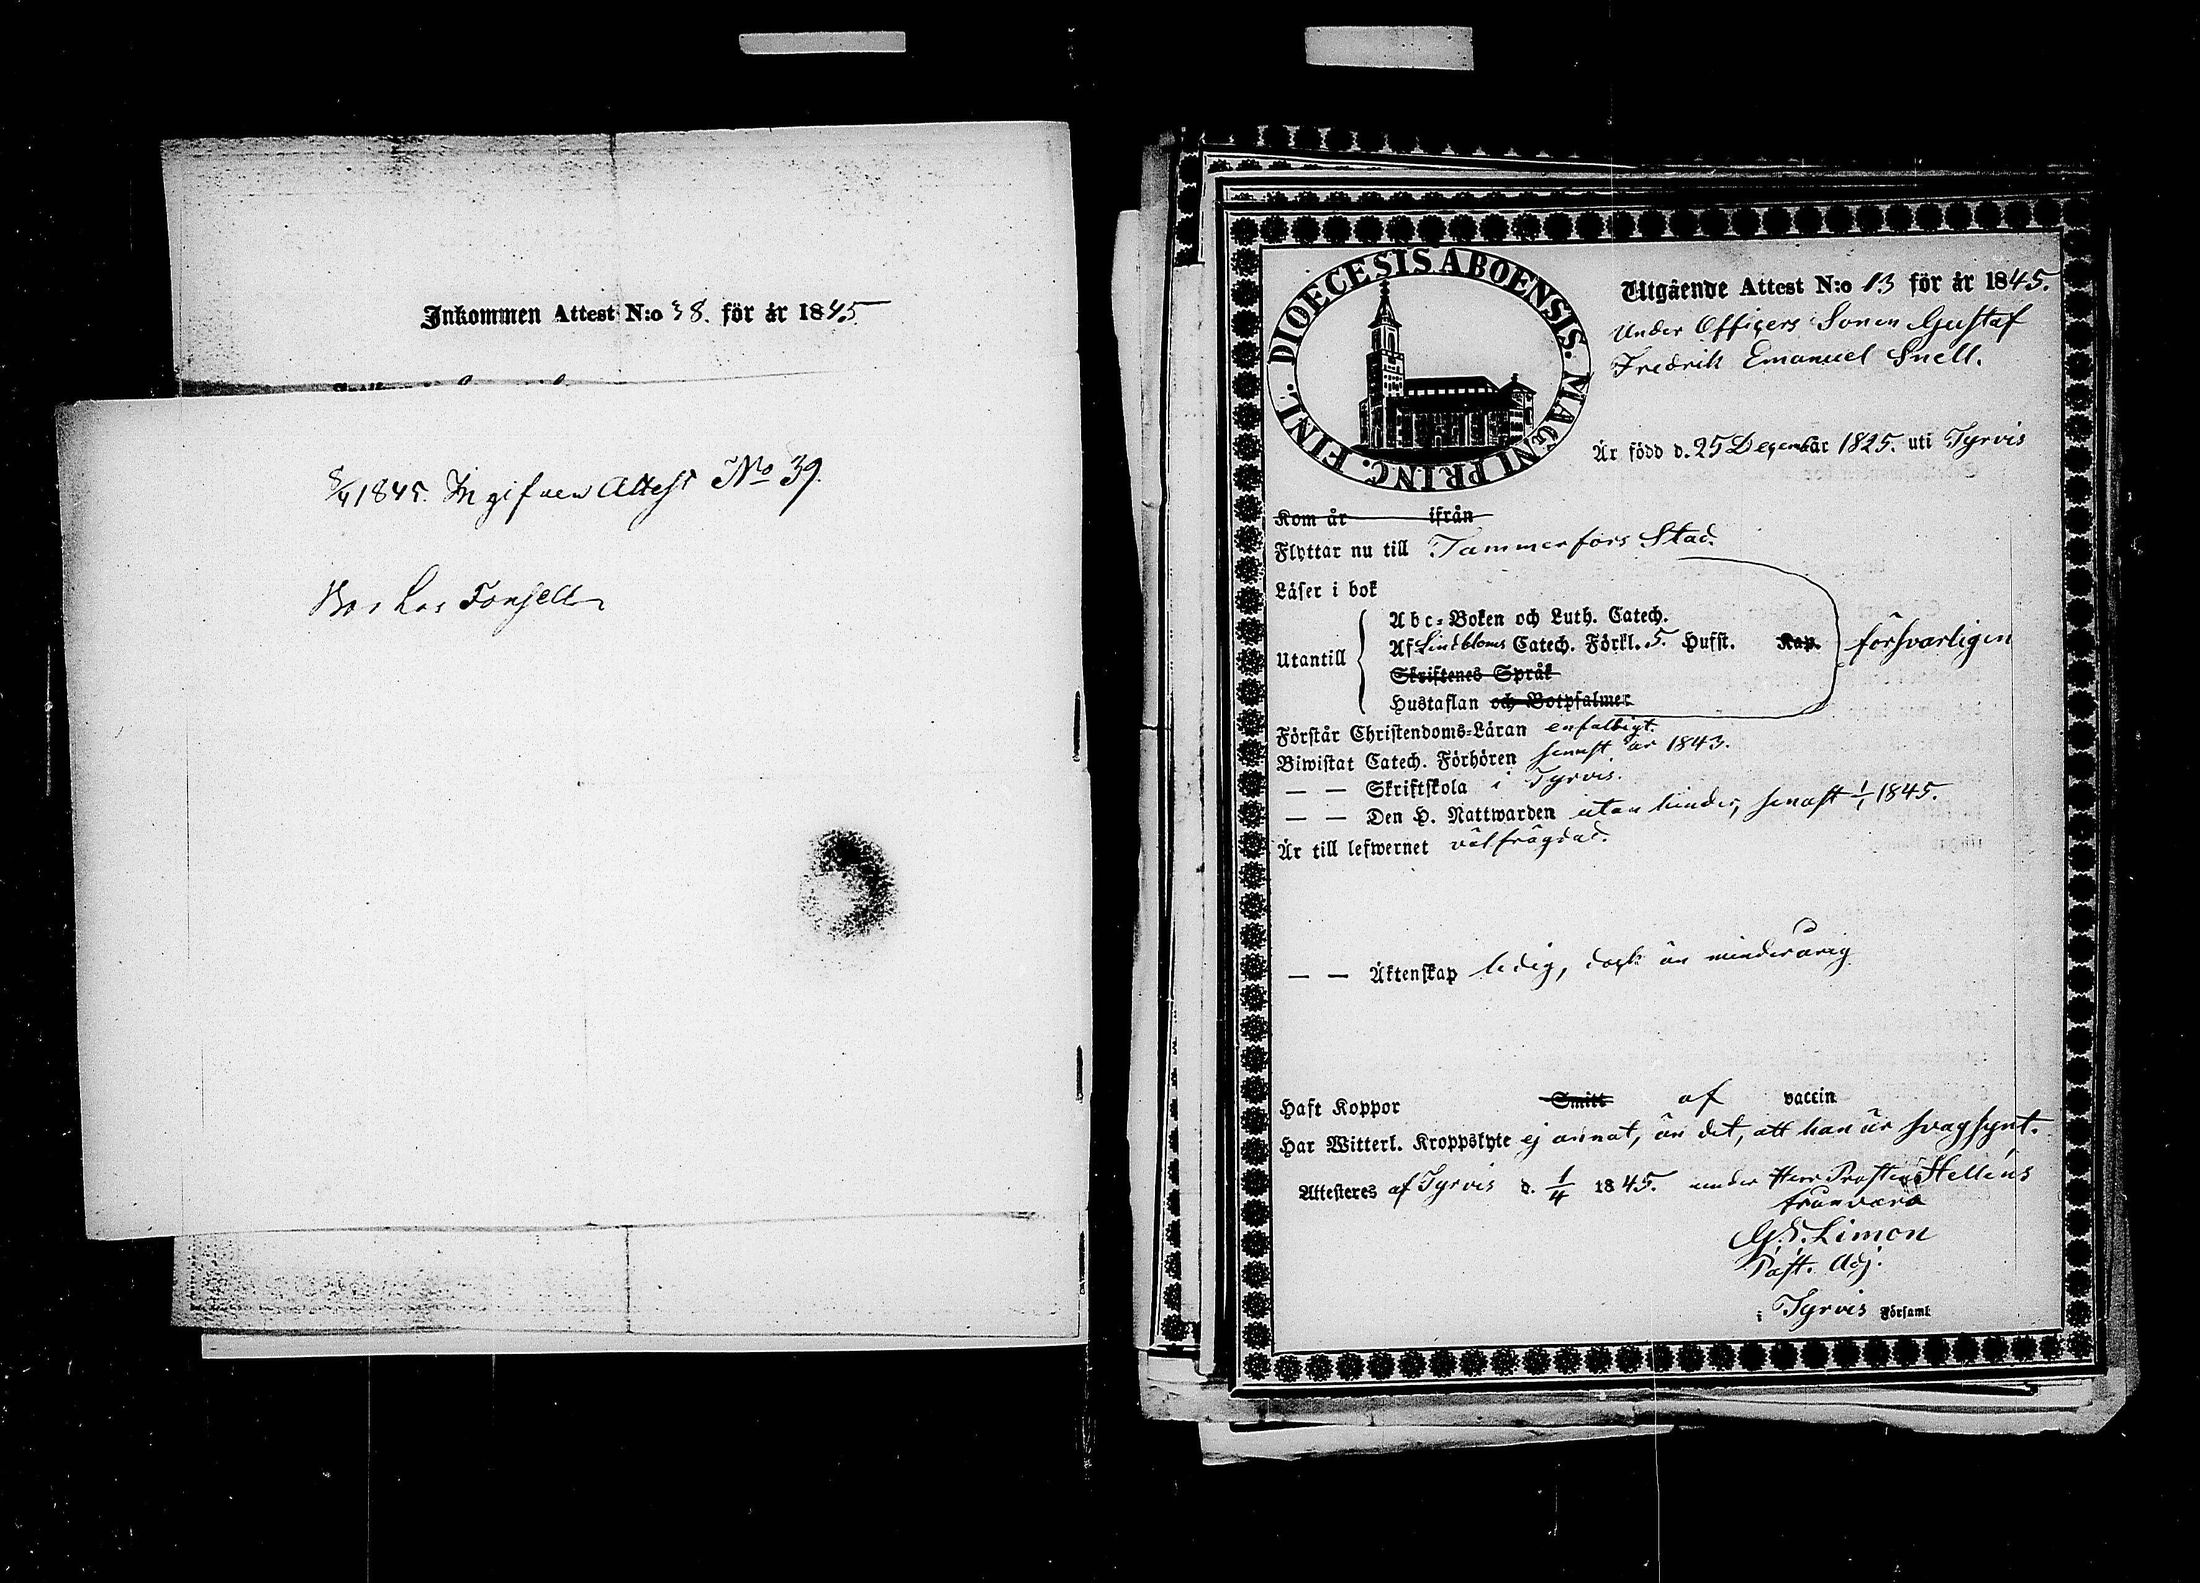 Inkommen Attest N:o 38. för år 1845
8/4 1845. Ingifven Attest No 39.
Bor hos
DIOECESIS ABOENSIS. MAGNI PRINC. FINL.
Utgående Attest N:o 13 för år 1845.
Under Officers Sonen Gustaf
Fredrik Emanuel Snell.
Är född d. 25 Decembär 1825. uti Tyrvis
Kom år ifrån
Flyttar nu till Tammerfors Stad.
Läser i bok
Utantill
Abc-Boken och Luth. Catech.
Af Lindbloms Catech. Förkl. 5. Hufst. Kap.
Skriftenes Språk
Hustaflan och Botpsalmer
försvarligen
Förstår Christendoms-Läran enfaldigt.
Biwistat Catech. Förhören senast år 1843.
— — Skriftskola i Tyrvis.
— — Den H. Nattwarden utan hinder, senast 1/1 1845.
Är till lefwernet välfrägdad.
— — Äktenskap ledig, dock än minderårig
Haft Koppor Smitt af vaccin
Har Witterl. Kroppslyte ej annat, än det, att han är svagsynt.
Attesteres af Tyrvis d. 1/4 1845. under Herr Prosten Helléns
frånvaro
G. E. Limon
Past. Adj.
i Tyrvis Församl